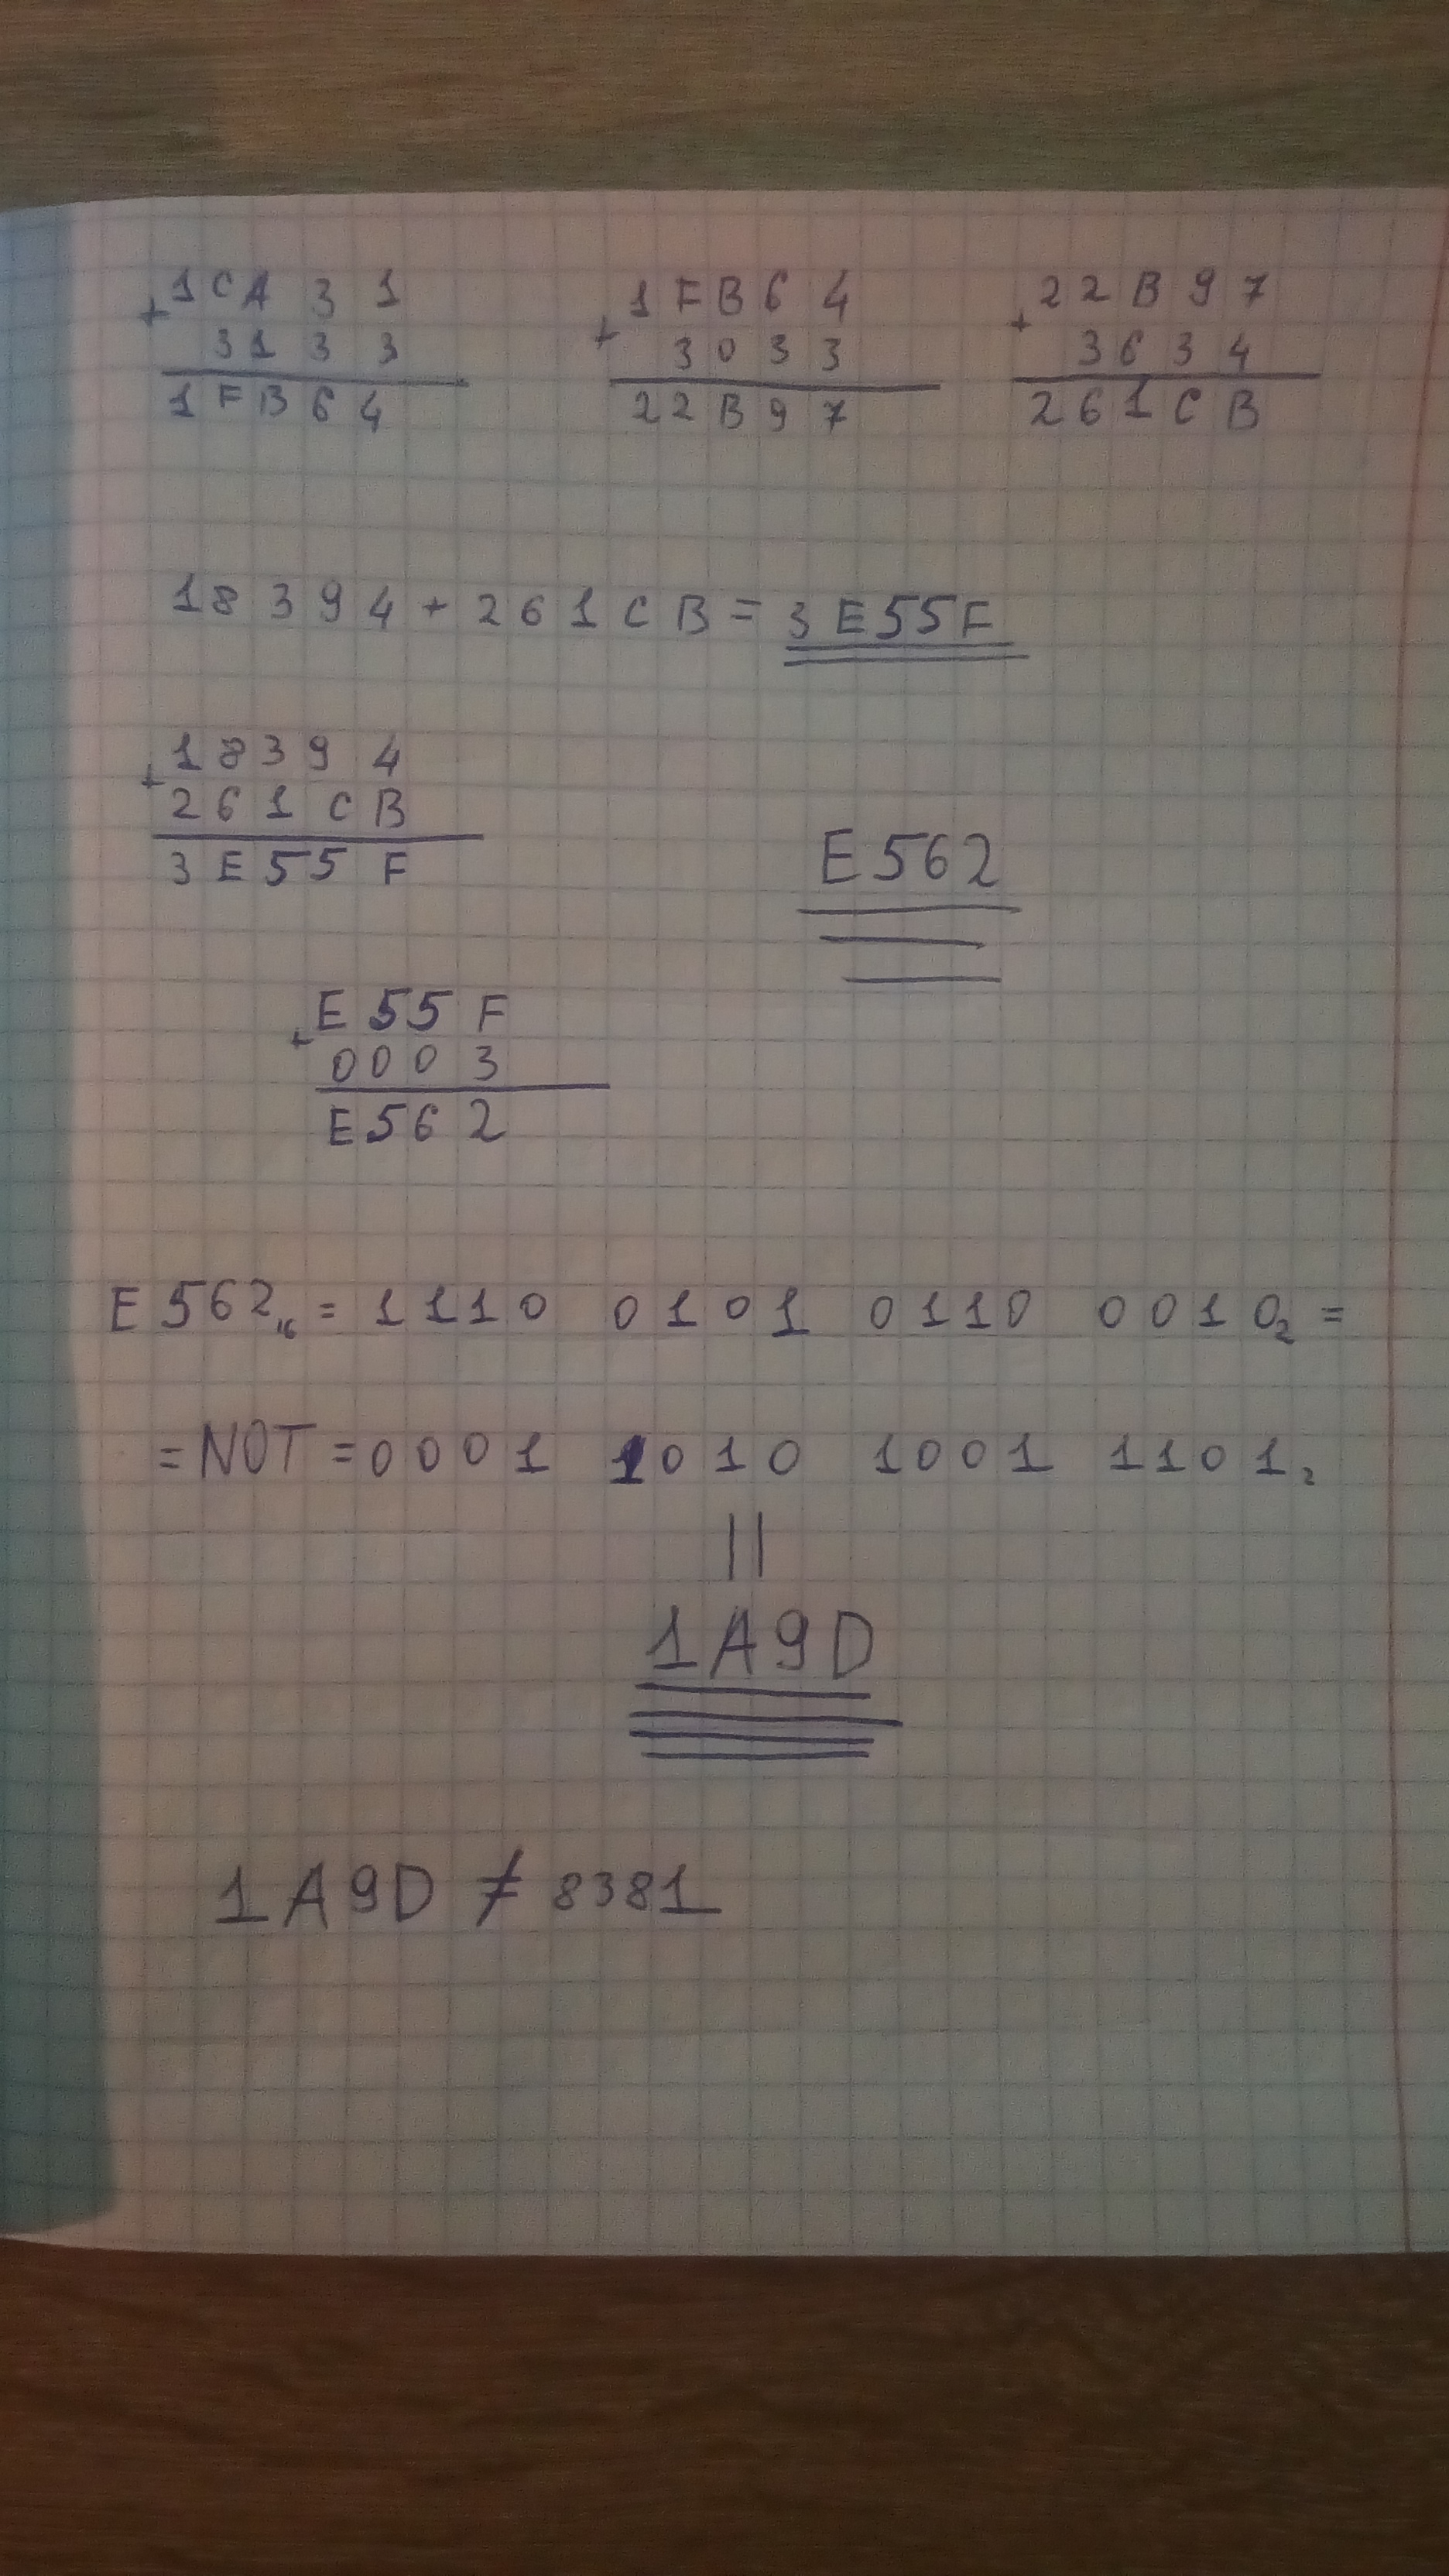 + 1CA31 + 1FB64 + 22B97
3133 3033 3634
1FB64 22B97 261CB
18394 + 261CB = 3E55F
+ 18394
261CB
3E55F
E562
+ E55F
0003
E562
E562₁₆ = 1110 0101 0110 0010₂ =
= NOT = 0001 1010 1001 1101₂
||
1A9D
1A9D ≠ 8381